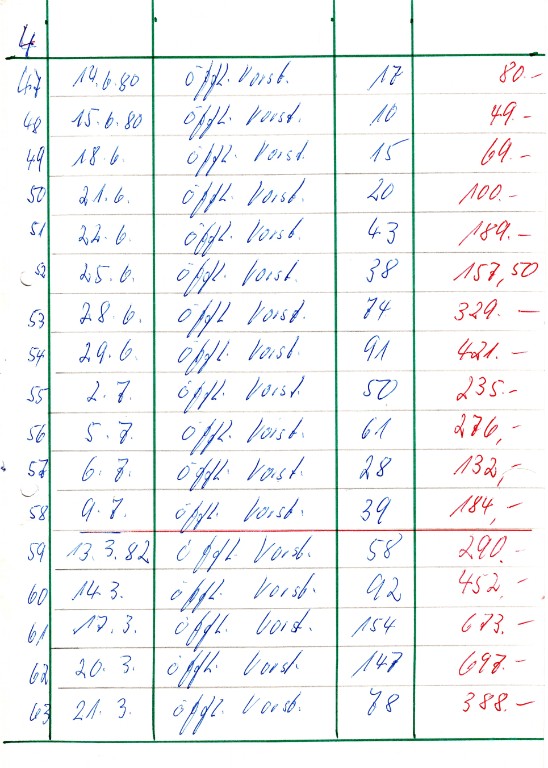 4
47 14.6.80 öffl. Vorst. 17 80.-
48 15.6.80 öffl. Vorst. 10 49.-
49 18.6. öffl. Vorst. 15 69.-
50 21.6. öffl. Vorst. 20 100.-
51 22.6. öffl. Vorst. 43 189.-
52 25.6. öffl. Vorst. 38 157,50
53 28.6. öffl. Vorst. 74 329.-
54 29.6. öffl. Vorst. 91 421.-
55 2.7. öffl. Vorst. 50 235.-
56 5.7. öffl. Vorst. 61 276,-
57 6.7. öffl. Vorst. 28 132,-
58 9.7. öffl. Vorst. 39 184,-
59 13.3.82 öffl. Vorst. 58 290.-
60 14.3. öffl. Vorst. 92 452,-
61 17.3. öffl. Vorst. 154 673.-
62 20.3. öffl. Vorst. 147 697.-
63 21.3. öffl. Vorst. 78 388.-